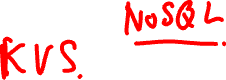 NoSQL
KVS.